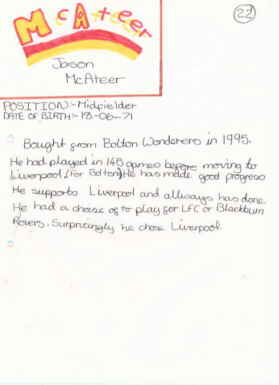 McAteer
22
Jason
McAteer
POSITION:- Midfielder
DATE OF BIRTH:- 18-06-71
Bought from Bolton Wonderers in 1995.
He had played in 148 games before moving to
Liverpool, (For Bolton) He has made good progress
He supports Liverpool and allways has done.
He had a choise of to play for LFC or Blackburn
Rovers. Surprisingly he chose Liverpool.